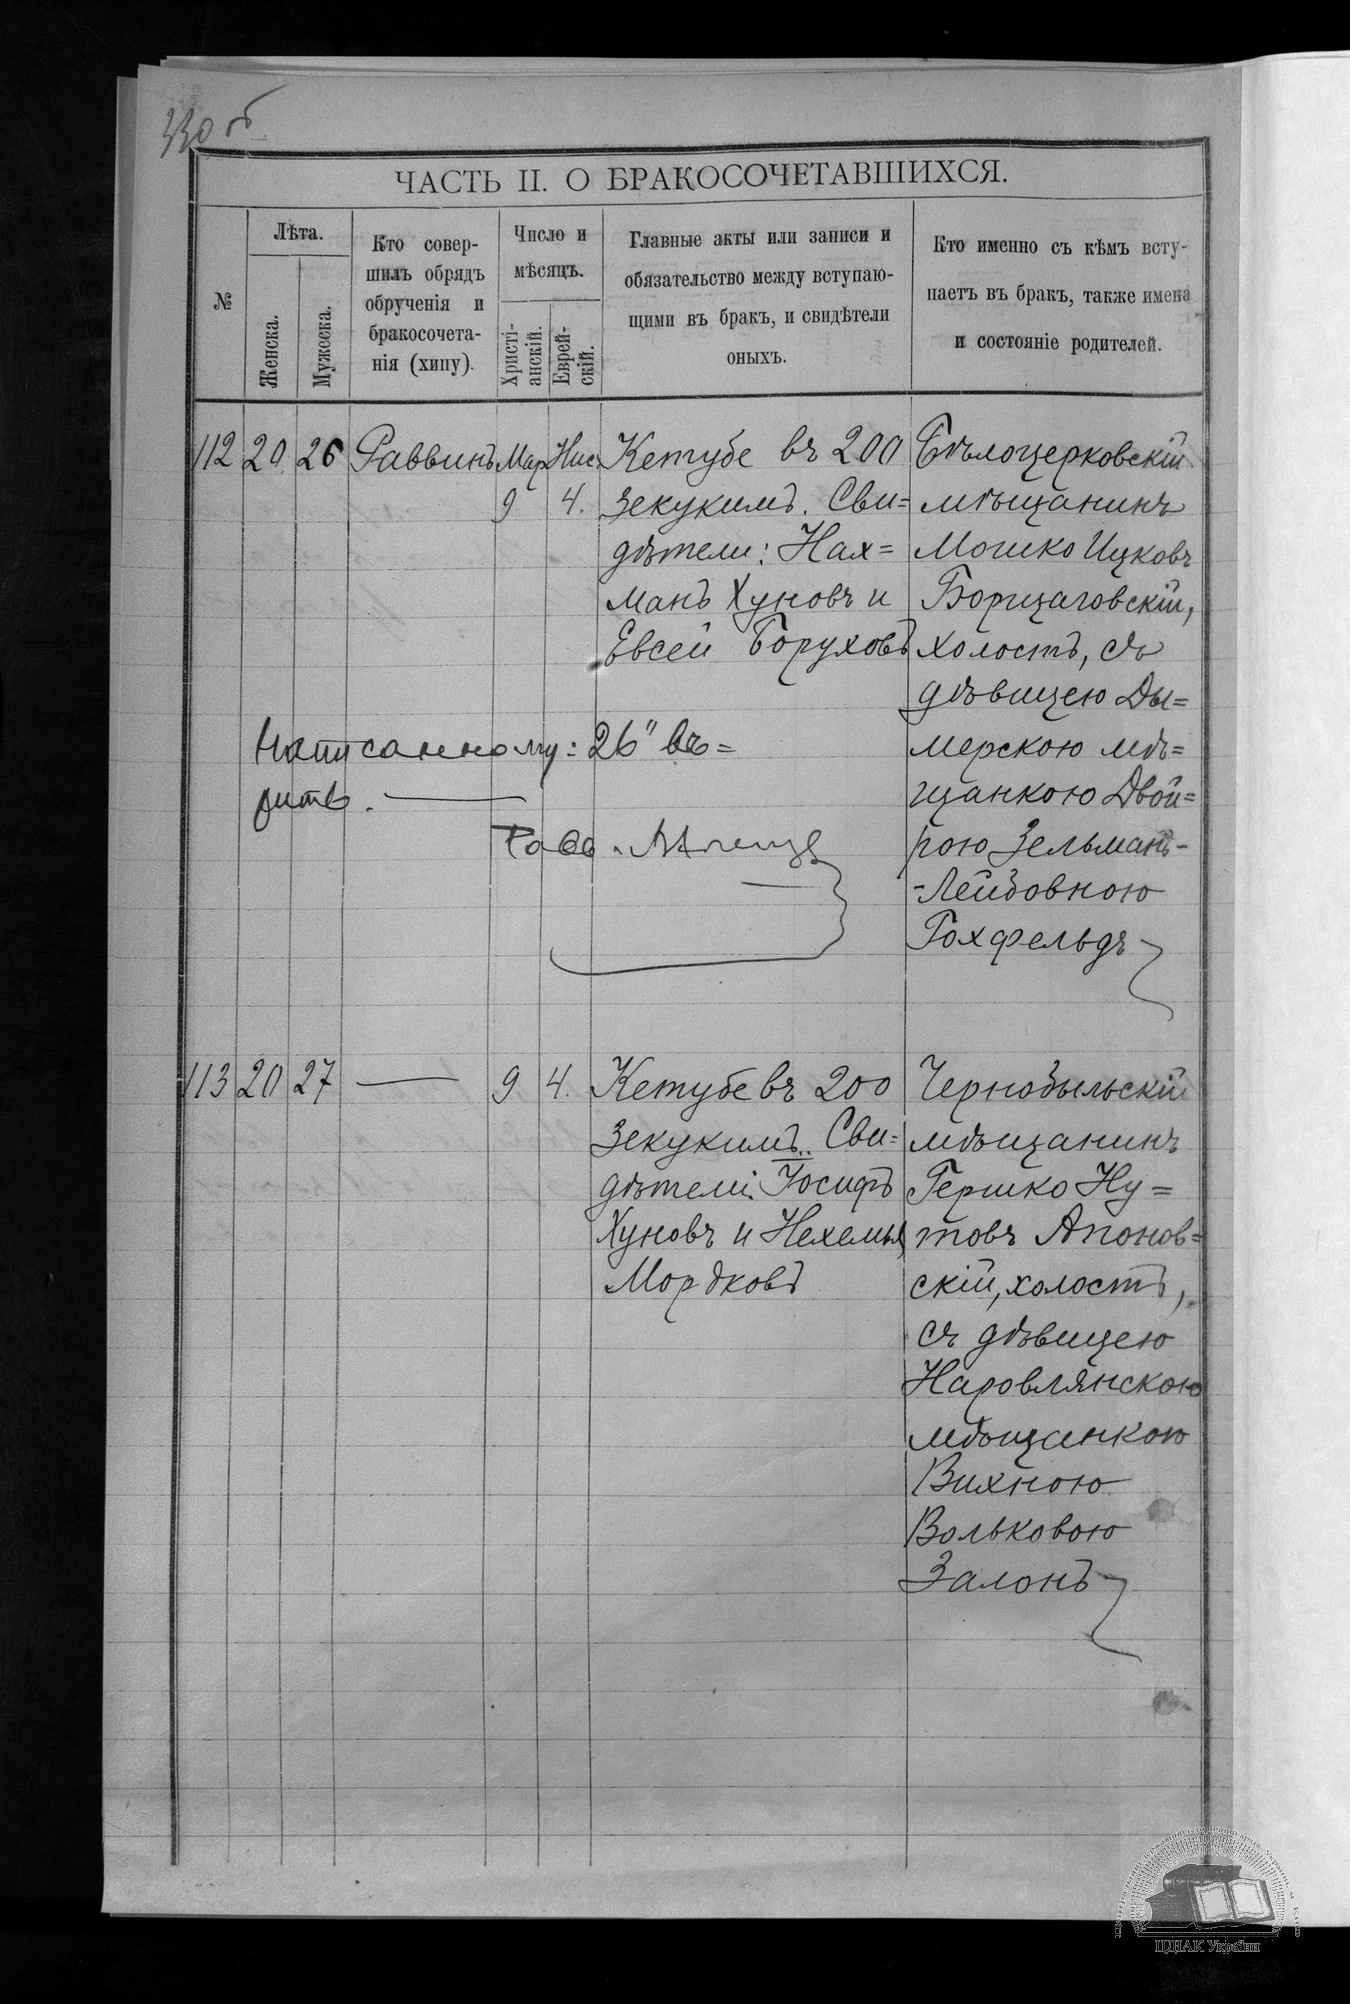 330 об
ЧАСТЬ II. О БРАКОСОЧЕТАВШИХСЯ.
№
Лѣта.
Женска.
Мужеска.
Кто совер-
шилъ обрядъ
обрученія и
бракосочета-
нія (хипу).
Число и
мѣсяцъ.
Христі-
анскій.
Еврей-
скій.
Главные акты или записи и
обязательство между вступаю-
щими въ бракъ, и свидѣтели
оныхъ.
Кто именно съ кѣмъ всту-
паетъ въ бракъ, также имена
и состояніе родителей.
112
20
26
Раввинъ
Мар
9
Нис.
4.
Кетубе въ 200
зекукимъ. Сви=
дѣтели: Нах=
манъ Хуновъ и
Евсей Боруховъ
Бѣлоцерковскій
мѣщанинъ
Мошко Ицковъ
Борщаговскій,
холостъ, съ
дѣвицею Ды=
мерскою мѣ=
щанкою Двой=
рою Зельманъ-
-Лейбовною
Гохфельдъ
Написанному: 26" вѣ=
рить.
Равв.
113
20
27
—
9
4.
Кетубе въ 200
зекукимъ. Сви=
дѣтели: Іосифъ
Хуновъ и Нехемья
Мордковъ
Чернобыльскій
мѣщанинъ
Гершко Ну=
товъ Апонов=
скій, холостъ,
съ дѣвицею
Наровлянскою
мѣщанкою
Вихною
Вольковою
Залонъ
ЦДІАК України